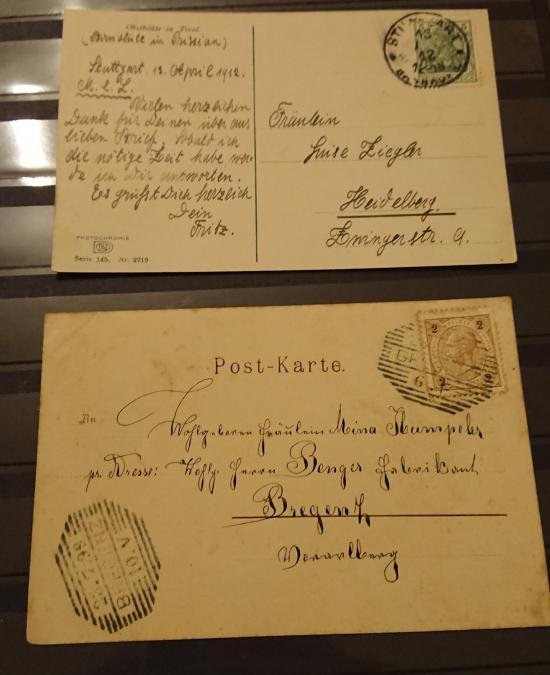 Obstblüte in Tirol
Stuttgart. 13. April 1912.
M. l. L.
Vielen herzlichen
Dank für Deinen überaus
lieben Brief, sobald ich
die nötige Zeit habe wer-
de ich Dir antworten.
Es grüßt Dich herzlich
Dein
Fritz.
PHOTOCHROMIE
Serie 145. Nr. 2719
Fräulein
Luise Ziegler
Heidelberg.
Zwingerstr. 9.
STUTTGART
13
12
Post-Karte.
2 2
An
Wohlgeboren Fräulein Mina Kumpeler
pr. Adresse: Wohlg. Herrn Benger Fabrikant
Bregenz
Vorarlberg
BREGENZ
10.V